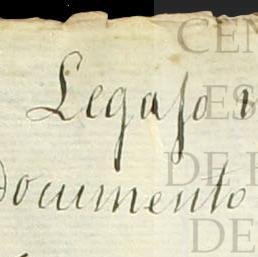 Legajo 1
Documento
CEN
ES
DE
DE